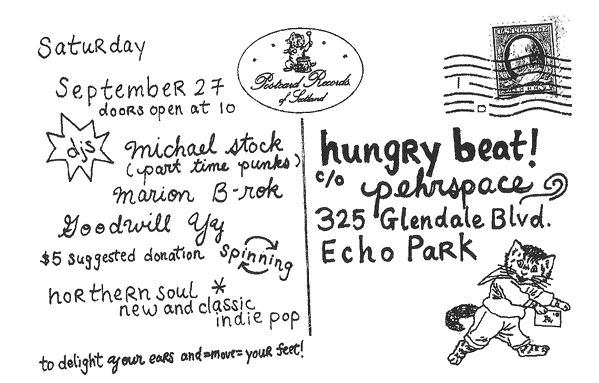 Saturday
September 27
doors open at 10
djs
michael stock
(part time punks)
marion B-rok
Goodwill Yy
$5 suggested donation
spinning
northern soul *
new and classic
indie pop
to delight your ears and =move= your feet!
Postcard Records
of Scotland
hungry beat!
c/o pehrspace
325 Glendale Blvd.
Echo Park